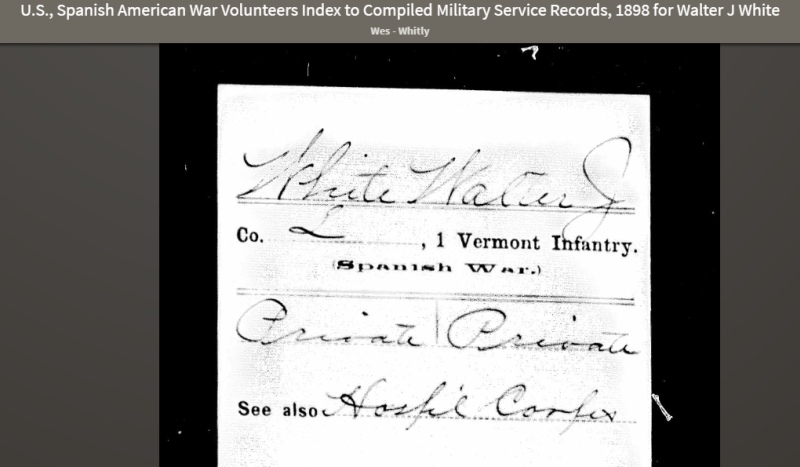 U.S., Spanish American War Volunteers Index to Compiled Military Service Records, 1898 for Walter J White
Wes - Whitly
White Walter J
Co. L, 1 Vermont Infantry.
(Spanish War.)
Private | Private
See also Hosp'l Corps